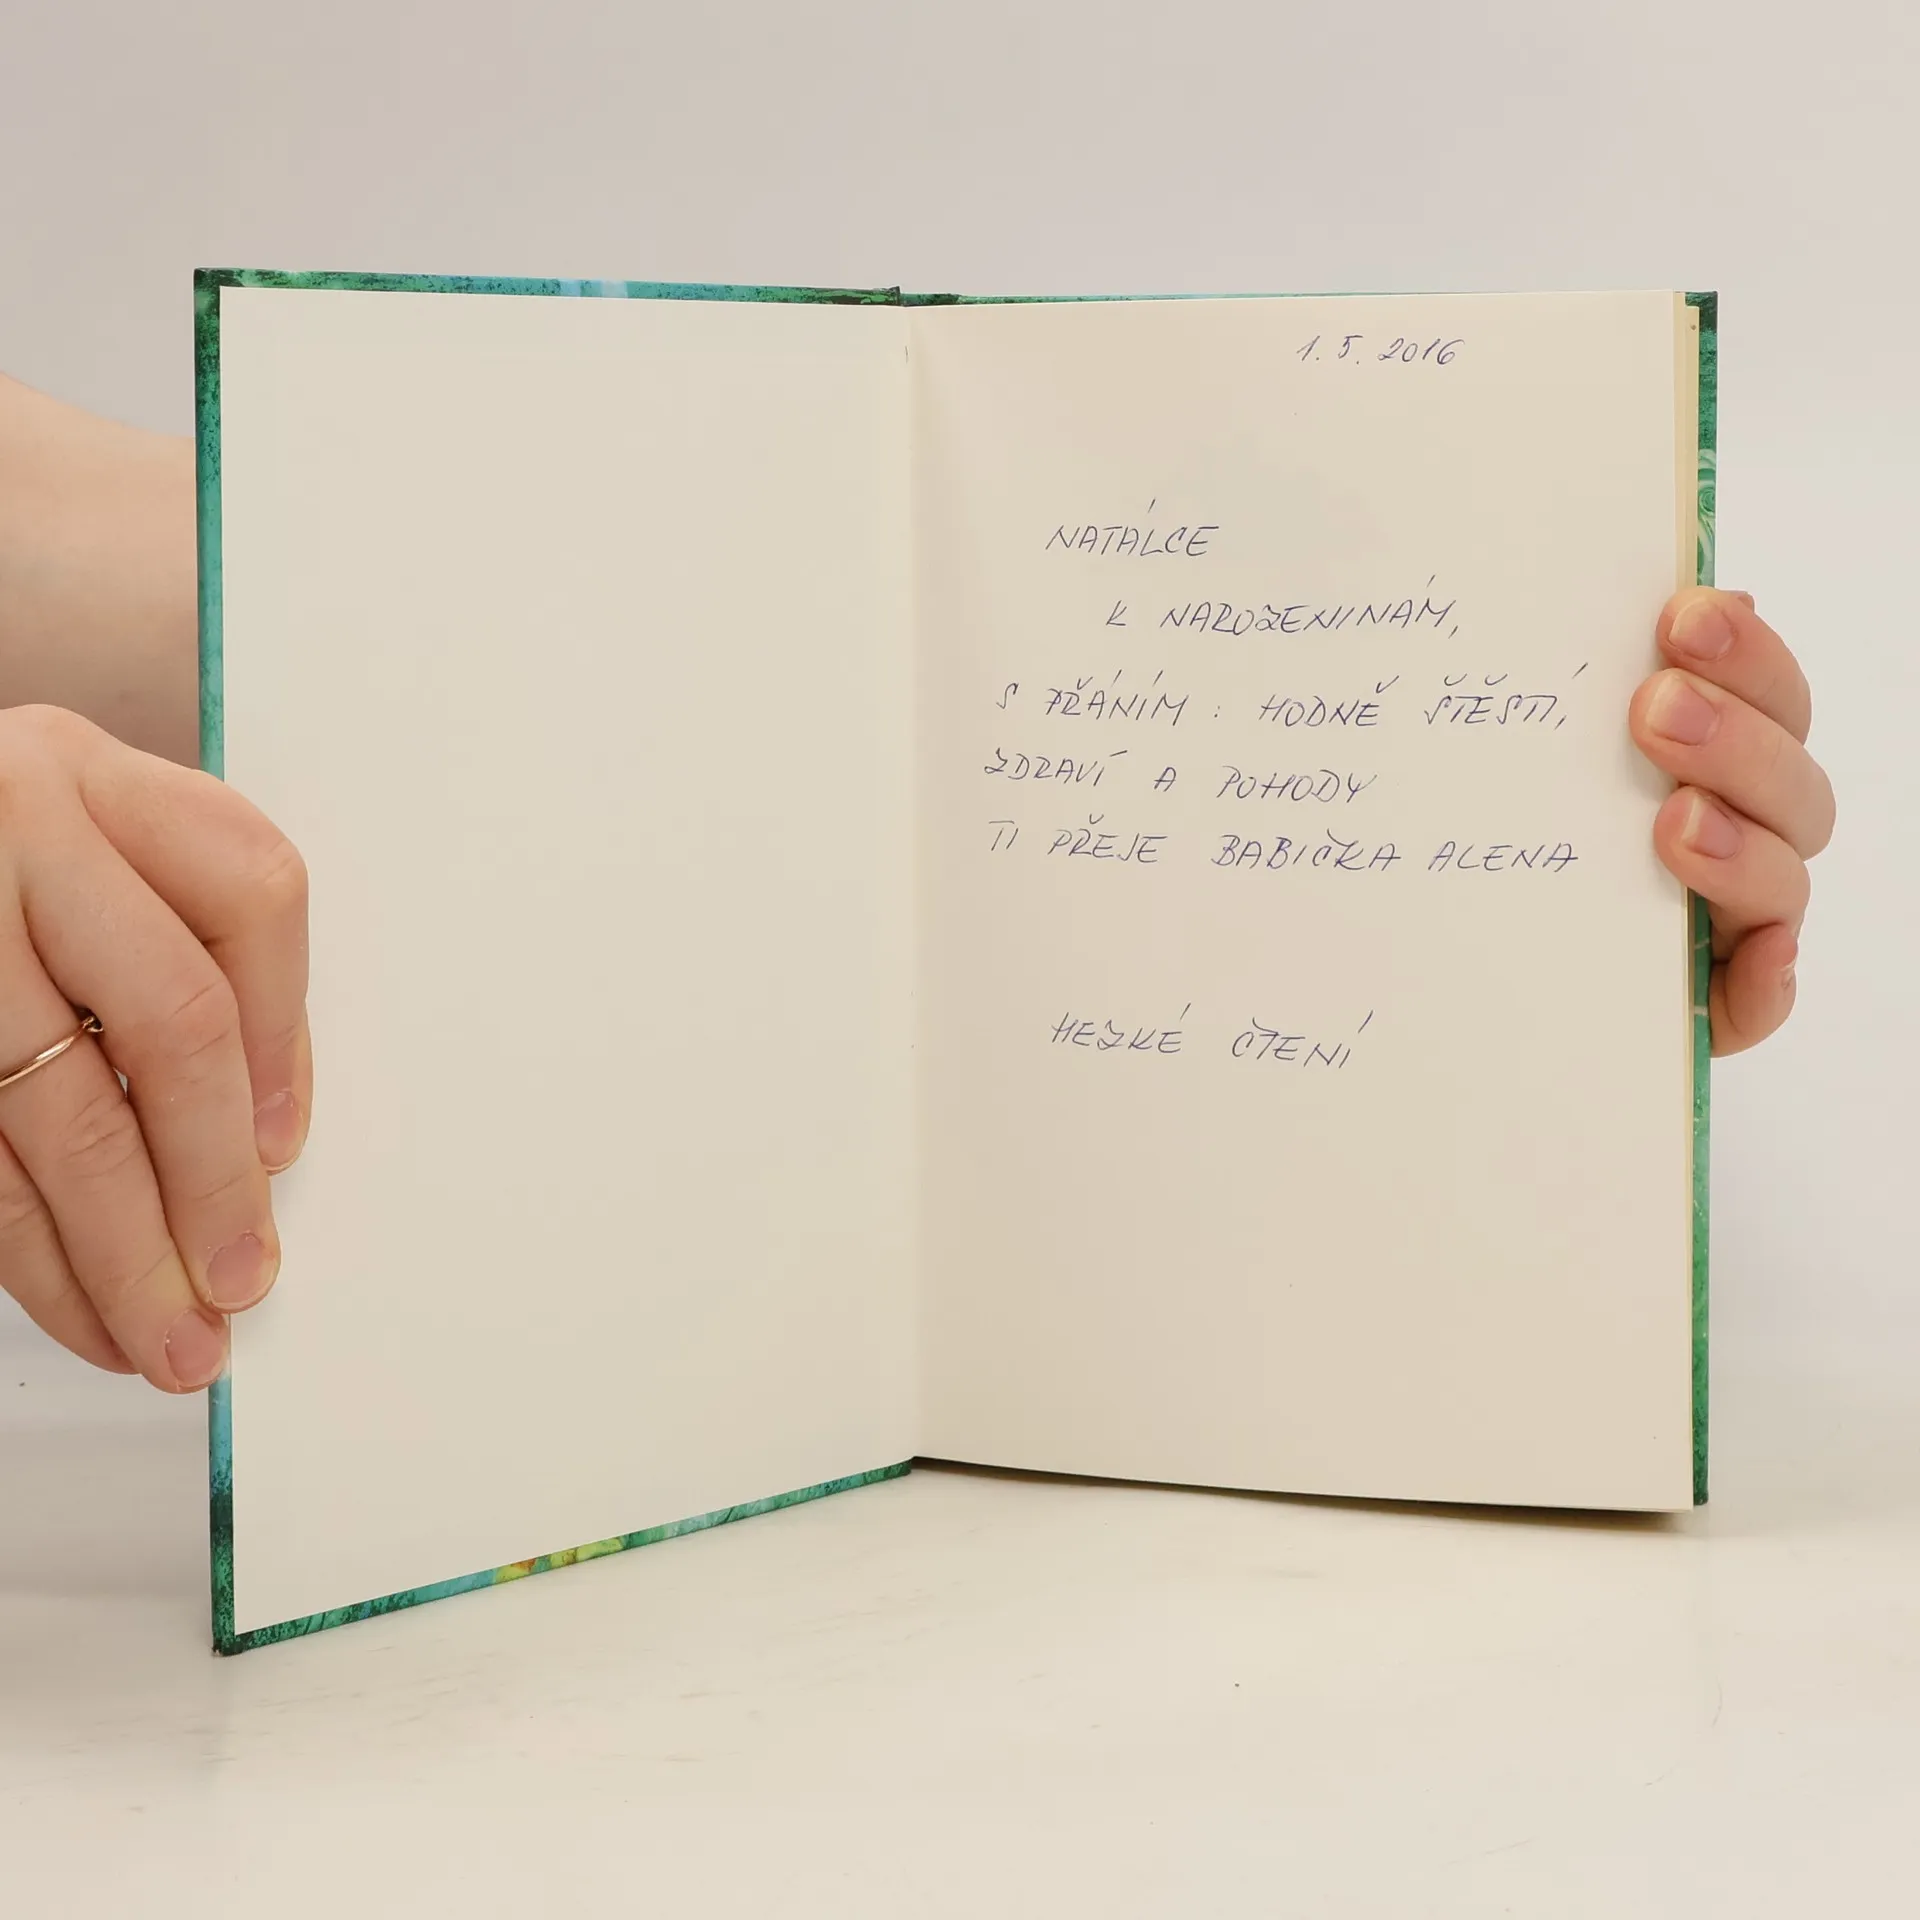 1. 5. 2016
NATÁLCE
K NAROZENINÁM,
S PŘÁNÍM : HODNĚ ŠTĚSTÍ,
ZDRAVÍ A POHODY
TI PŘEJE BABIČKA ALENA
HEZKÉ ČTENÍ